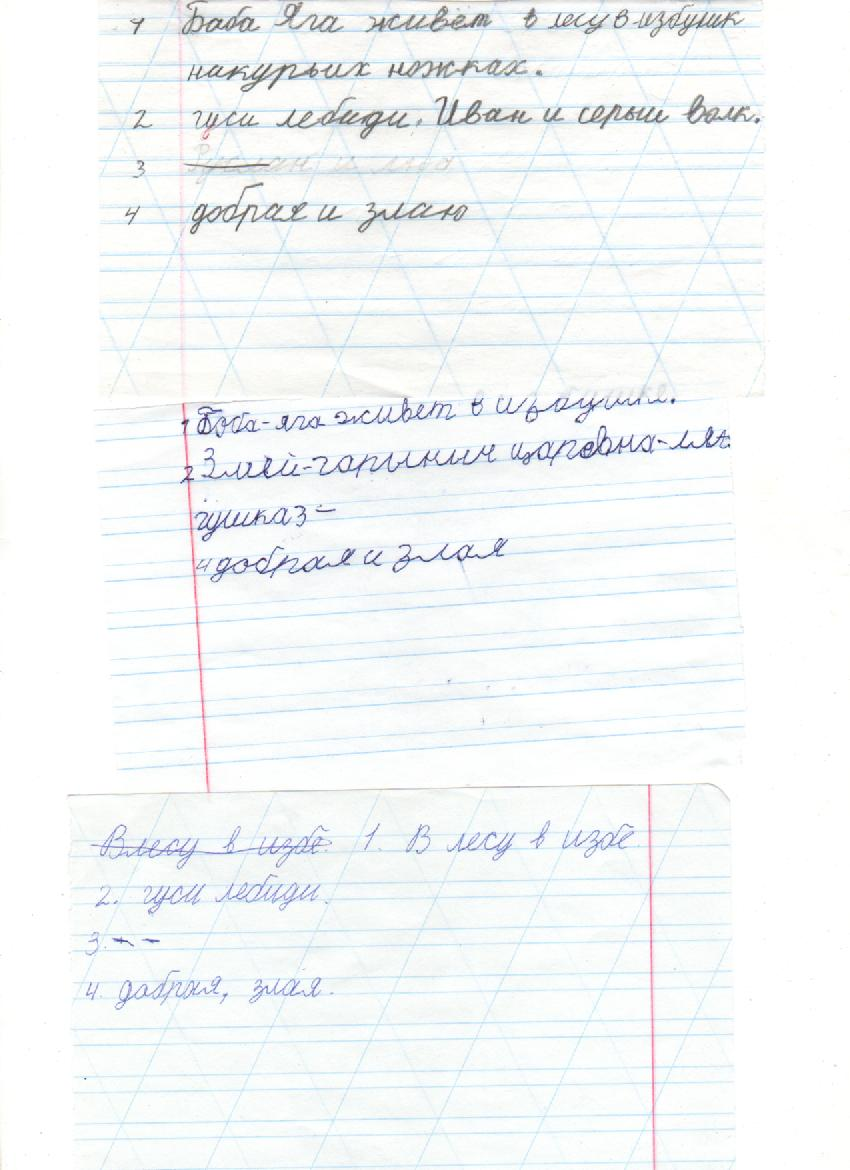 1 Баба Яга живёт в лесу в избушк
накурьих ножках.
2 гуси лебиди. Иван и серыи волк.
3
4 добрая и злаю
1 Боба-яга живет в избушке.
2 Змей-гарынич царевна-ля
гушка 3 –
4 добрая и злая
В лесу в избе. 1. В лесу в избе.
2. гуси лебиди.
3. – –
4. добрая, злая.